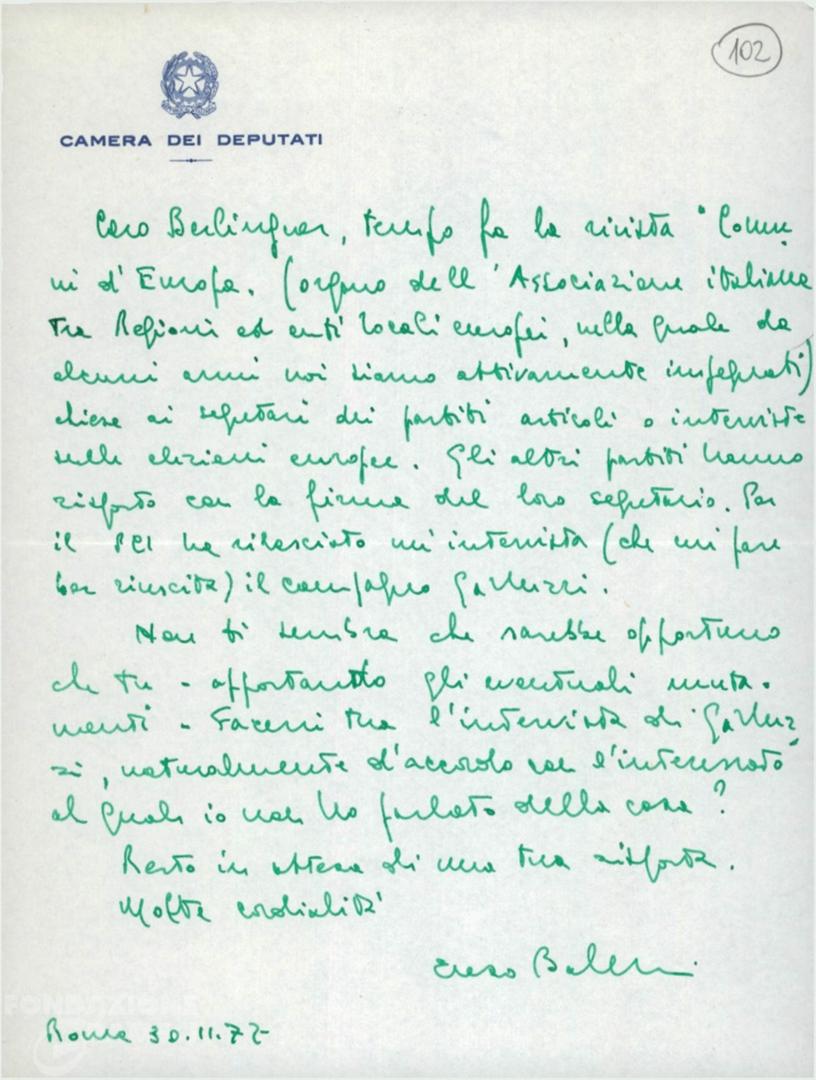 102
CAMERA DEI DEPUTATI
Caro Berlinguer, tempo fa la rivista "Comu
ni d'Europa. (organo dell'Associazione italiana
tra Regioni ed enti locali europei, nella quale da
alcuni anni noi siamo attivamente impegnati)
chiese ai segretari dei partiti articoli o interviste
sulle elezioni europee. Gli altri partiti hanno
risposto con la firma del loro segretario. Per
il PCI ha rilasciato un'intervista (che mi pare
ben riuscita) il compagno Galluzzi.
Non ti sembra che sarebbe opportuno
che tu - apportando gli eventuali muta-
menti - facessi tua l'intervista di Galluz
zi, naturalmente d'accordo con l'interessato
al quale io non ho parlato della cosa?
Resto in attesa di una tua risposta.
Molta cordialità
Roma 30.11.77
FONDAZIONE